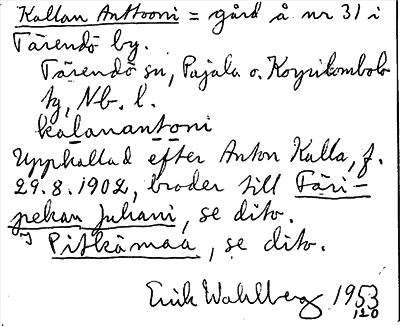 Kallan Anttooni = gård å nr 31 i
Tärendö by.
Tärendö sn, Pajala o. Korpilombolo
tg, Nb. l.
kalanantoni
Upphallad efter Anton Kalla, f.
29.8.1902, broder till Färi-
pekan Juhani, se dito.
Pitkämaa, se dito.
Erik Wahlberg 1953
120